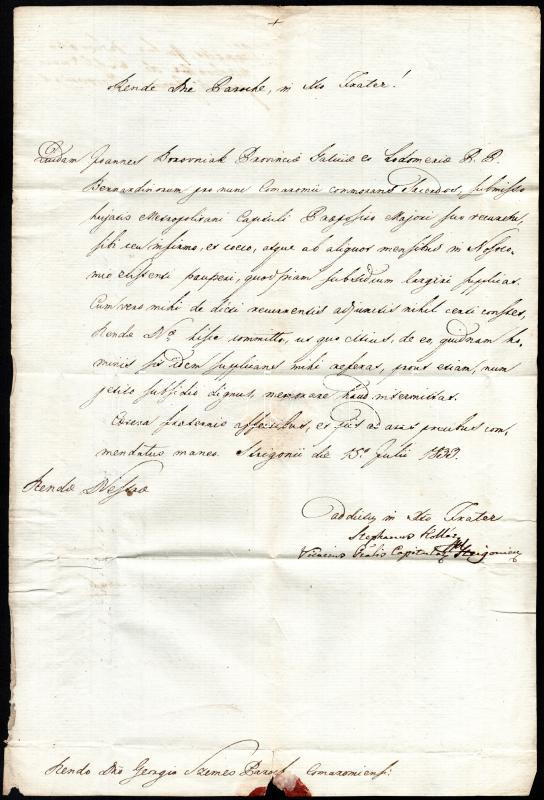 +
Rende Dne Paroche, in Xto Frater!
Quidam Joannes Borovniak Provinciæ Galiciæ et Lodomeriæ P. P.
Bernardinorum pro nunc Comaromii commorans Sacerdos, submisso
hujatis Metropolitani Capituli Præposito Majori suo recursu,
sibi ceu infirmo, et coeco, atque ab aliquot mensibus in Nosoco-
mio existenti pauperi, quodpiam subsidium largiri supplicat.
Cum vero mihi de dicti recurrentis adjunctis nihil certi constet,
Rendæ Dni hisce committo, ut quo citius, de eo, quidnam ho-
minis sit idem supplicans mihi referat, prout etiam, num
petito subsidio dignus, memorare haud intermittat.
Cetera fraternis affectibus, et piis ad aras precibus com-
mendatus maneo. Strigonii die 15a Julii 1833.
Rendæ DVestræ
addictus in Xto Frater
Stephanus Kollár
Vicarius Gralis Capitularis Strigonien
Rendo Dno Georgio Szemes Paroch Comaromiensi